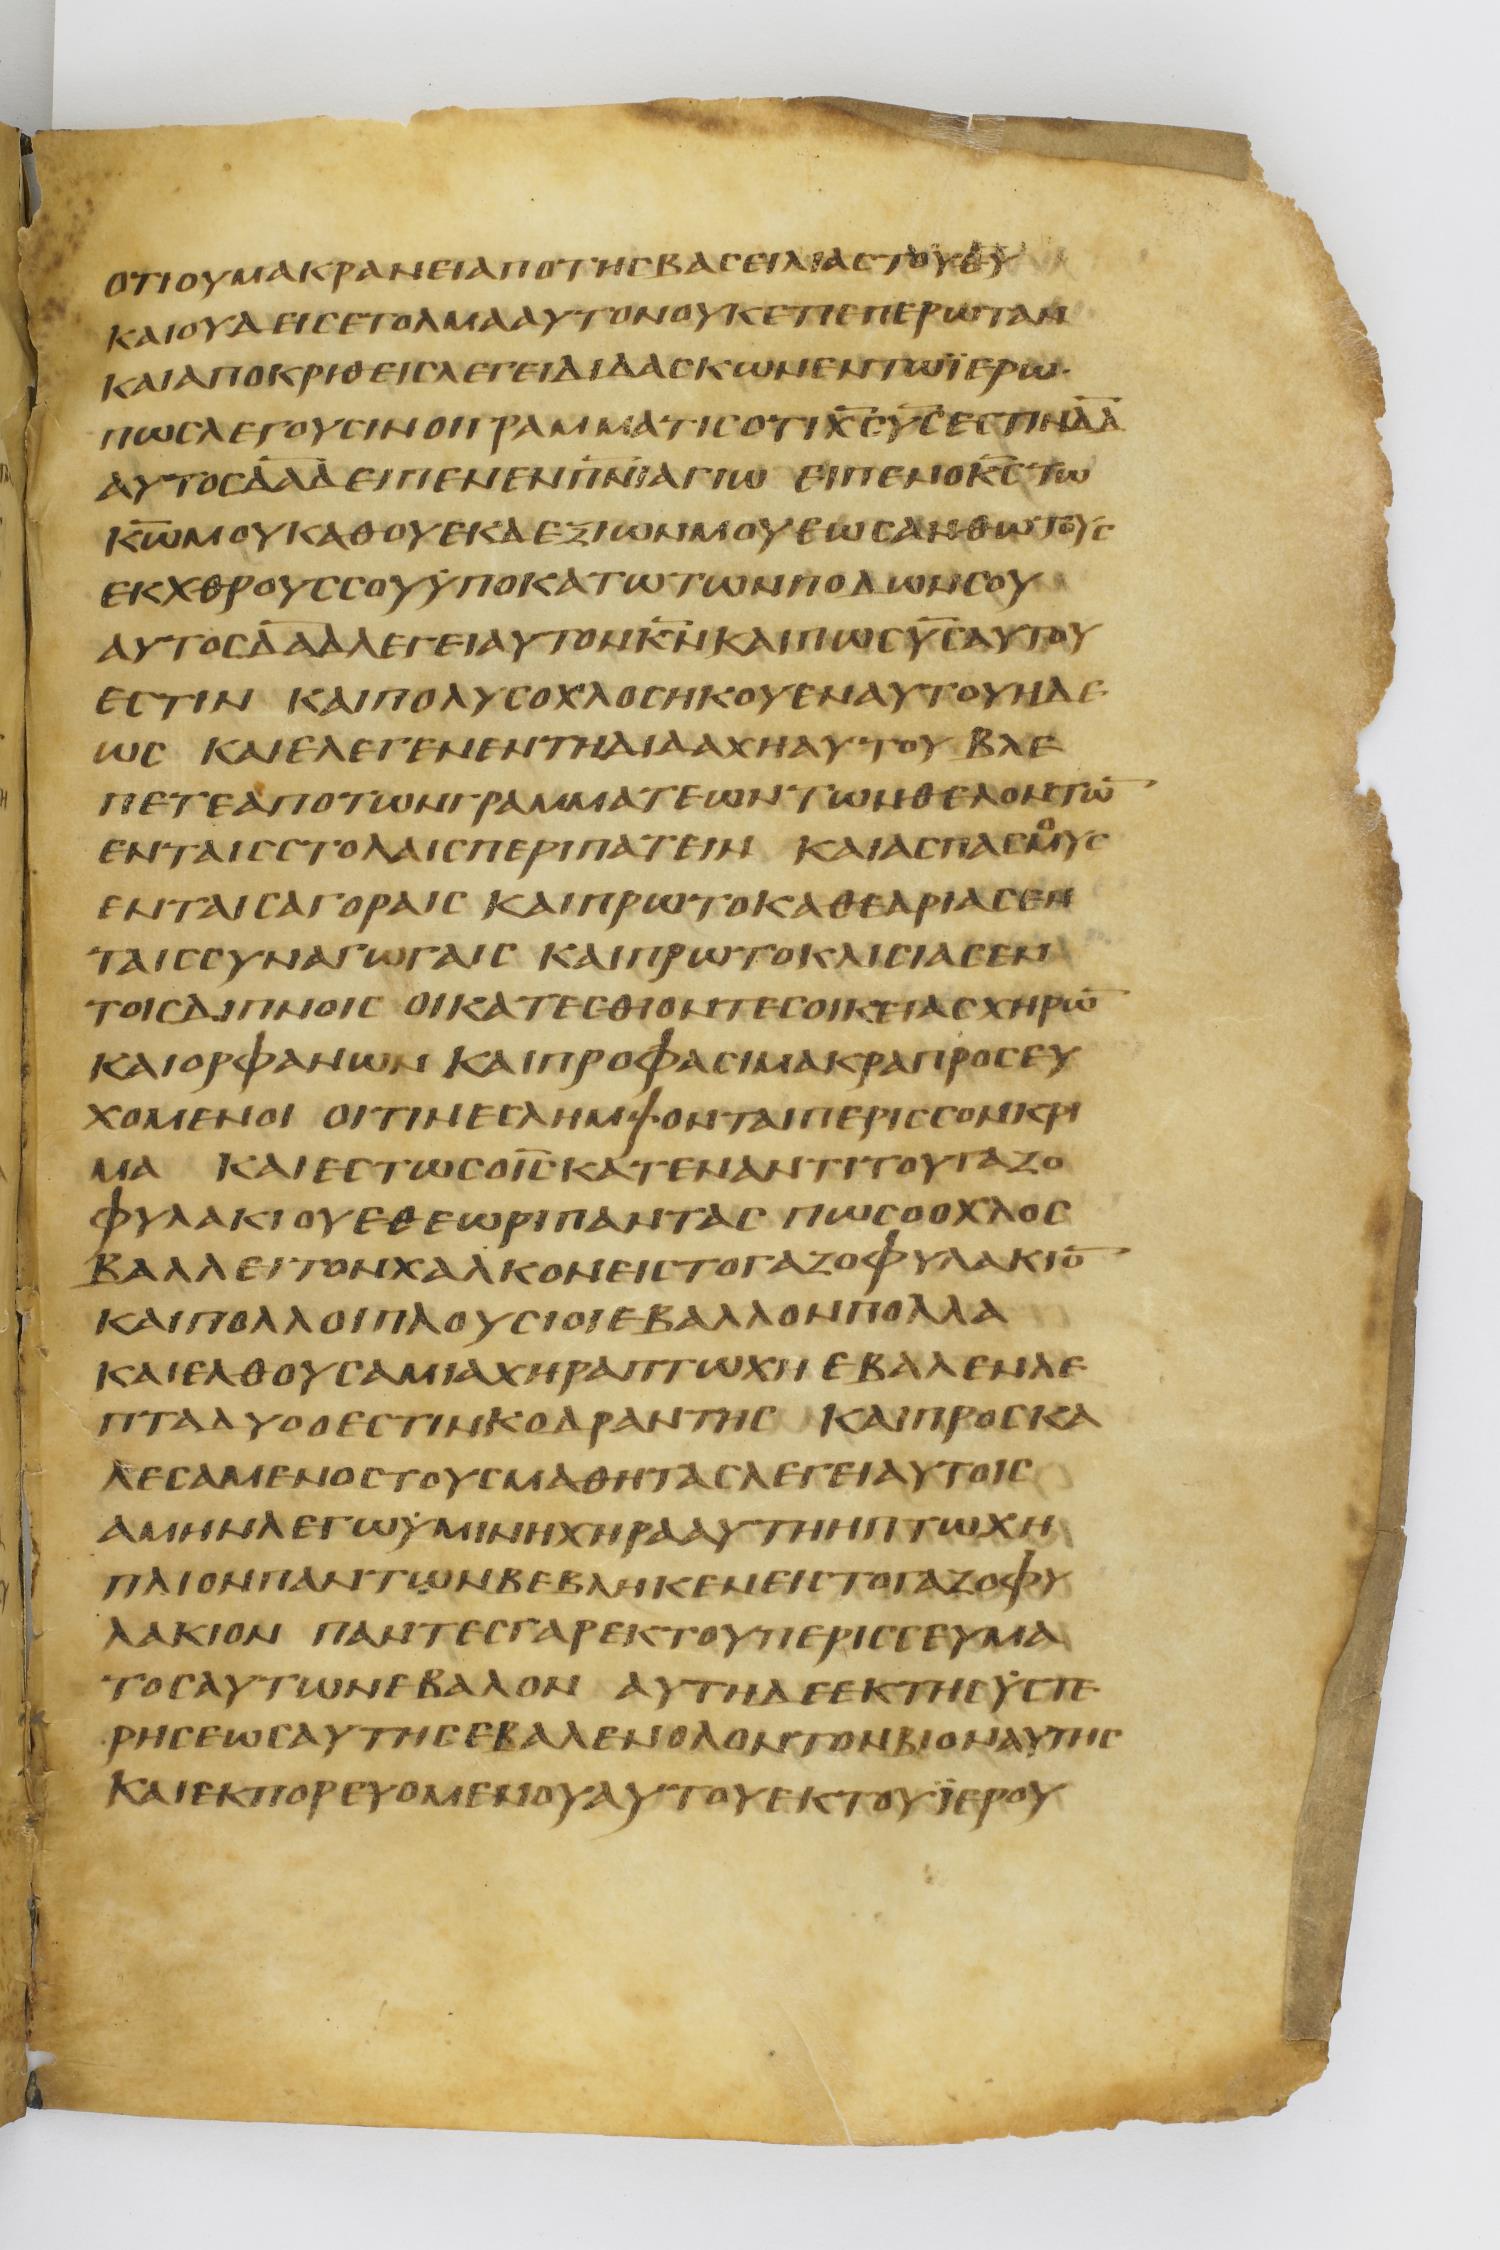 ΟΤΙΟΥΜΑΚΡΑΝΕΙΑΠΟΤΗϹΒΑϹΕΙΛΙΑϹΤΟΥΘ̅Υ̅
ΚΑΙΟΥΔΕΙϹΕΤΟΛΜΑΑΥΤΟΝΟΥΚΕΤΙΕΠΕΡΩΤΑΝ
ΚΑΙΑΠΟΚΡΙΘΕΙϹΛΕΓΕΙΔΙΔΑϹΚΩΝΕΝΤΩΪΕΡΩ·
ΠΩϹΛΕΓΟΥϹΙΝΟΙΓΡΑΜΜΑΤΙϹΟΤΙΧ̅Ϲ̅Υ̅Ϲ̅ΕϹΤΙΝΔ̅Α̅Δ̅
ΑΥΤΟϹΔ̅Α̅Δ̅ΕΙΠΕΝΕΝΠ̅Ν̅Ι̅ΑΓΙΩ ΕΙΠΕΝΟΚ̅Ϲ̅ΤΩ
Κ̅Ω̅ΜΟΥΚΑΘΟΥΕΚΔΕΞΙΩΝΜΟΥΕΩϹΑΝΘΩΤΟΥϹ
ΕΚΧΘΡΟΥϹϹΟΥΫΠΟΚΑΤΩΤΩΝΠΟΔΩΝϹΟΥ
ΑΥΤΟϹΔ̅Α̅Δ̅ΛΕΓΕΙΑΥΤΟΝΚ̅Ν̅ΚΑΙΠΩϹΥ̅Ϲ̅ΑΥΤΟΥ
ΕϹΤΙΝ ΚΑΙΠΟΛΥϹΟΧΛΟϹΗΚΟΥΕΝΑΥΤΟΥΗΔΕ
ΩϹ ΚΑΙΕΛΕΓΕΝΕΝΤΗΔΙΔΑΧΗΑΥΤΟΥ ΒΛΕ
ΠΕΤΕΑΠΟΤΩΝΓΡΑΜΜΑΤΕΩΝΤΩΝΘΕΛΟΝΤΩ̅
ΕΝΤΑΙϹϹΤΟΛΑΙϹΠΕΡΙΠΑΤΕΙΝ ΚΑΙΑϹΠΑϹΜΟΥϹ
ΕΝΤΑΙϹΑΓΟΡΑΙϹ ΚΑΙΠΡΩΤΟΚΑΘΕΔΡΙΑϹΕΝ
ΤΑΙϹϹΥΝΑΓΩΓΑΙϹ ΚΑΙΠΡΩΤΟΚΛΙϹΙΑϹΕΝ
ΤΟΙϹΔΙΠΝΟΙϹ ΟΙΚΑΤΕϹΘΙΟΝΤΕϹΟΙΚΕΙΑϹΧΗΡΩ̅
ΚΑΙΟΡΦΑΝΩΝ ΚΑΙΠΡΟΦΑϹΙΜΑΚΡΑΠΡΟϹΕΥ
ΧΟΜΕΝΟΙ ΟΙΤΙΝΕϹΛΗΜΨΟΝΤΑΙΠΕΡΙϹϹΟΝΚΡΙ
ΜΑ ΚΑΙΕϹΤΩϹΟΙ̅Ϲ̅ΚΑΤΕΝΑΝΤΙΤΟΥΓΑΖΟ
ΦΥΛΑΚΙΟΥΕΘΕΩΡΙΠΑΝΤΑϹ ΠΩϹΟΟΧΛΟϹ
ΒΑΛΛΕΙΤΟΝΧΑΛΚΟΝΕΙϹΤΟΓΑΖΟΦΥΛΑΚΙΟ̅
ΚΑΙΠΟΛΛΟΙΠΛΟΥϹΙΟΙΕΒΑΛΛΟΝΠΟΛΛΑ
ΚΑΙΕΛΘΟΥϹΑΜΙΑΧΗΡΑΠΤΩΧΗ ΕΒΑΛΕΝΛΕ
ΠΤΑΔΥΟΟΕϹΤΙΝΚΟΔΡΑΝΤΗϹ ΚΑΙΠΡΟϹΚΑ
ΛΕϹΑΜΕΝΟϹΤΟΥϹΜΑΘΗΤΑϹΛΕΓΕΙΑΥΤΟΙϹ
ΑΜΗΝΛΕΓΩΫΜΙΝΗΧΗΡΑΑΥΤΗΗΠΤΩΧΗ
ΠΛΙΟΝΠΑΝΤΩΝΒΕΒΛΗΚΕΝΕΙϹΤΟΓΑΖΟΦΥ
ΛΑΚΙΟΝ ΠΑΝΤΕϹΓΑΡΕΚΤΟΥΠΕΡΙϹϹΕΥΜΑ
ΤΟϹΑΥΤΩΝΕΒΑΛΟΝ ΑΥΤΗΔΕΕΚΤΗϹΫϹΤΕ
ΡΗϹΕΩϹΑΥΤΗϹΕΒΑΛΕΝΟΛΟΝΤΟΝΒΙΟΝΑΥΤΗϹ
ΚΑΙΕΚΠΟΡΕΥΟΜΕΝΟΥΑΥΤΟΥΕΚΤΟΥΪΕΡΟΥ